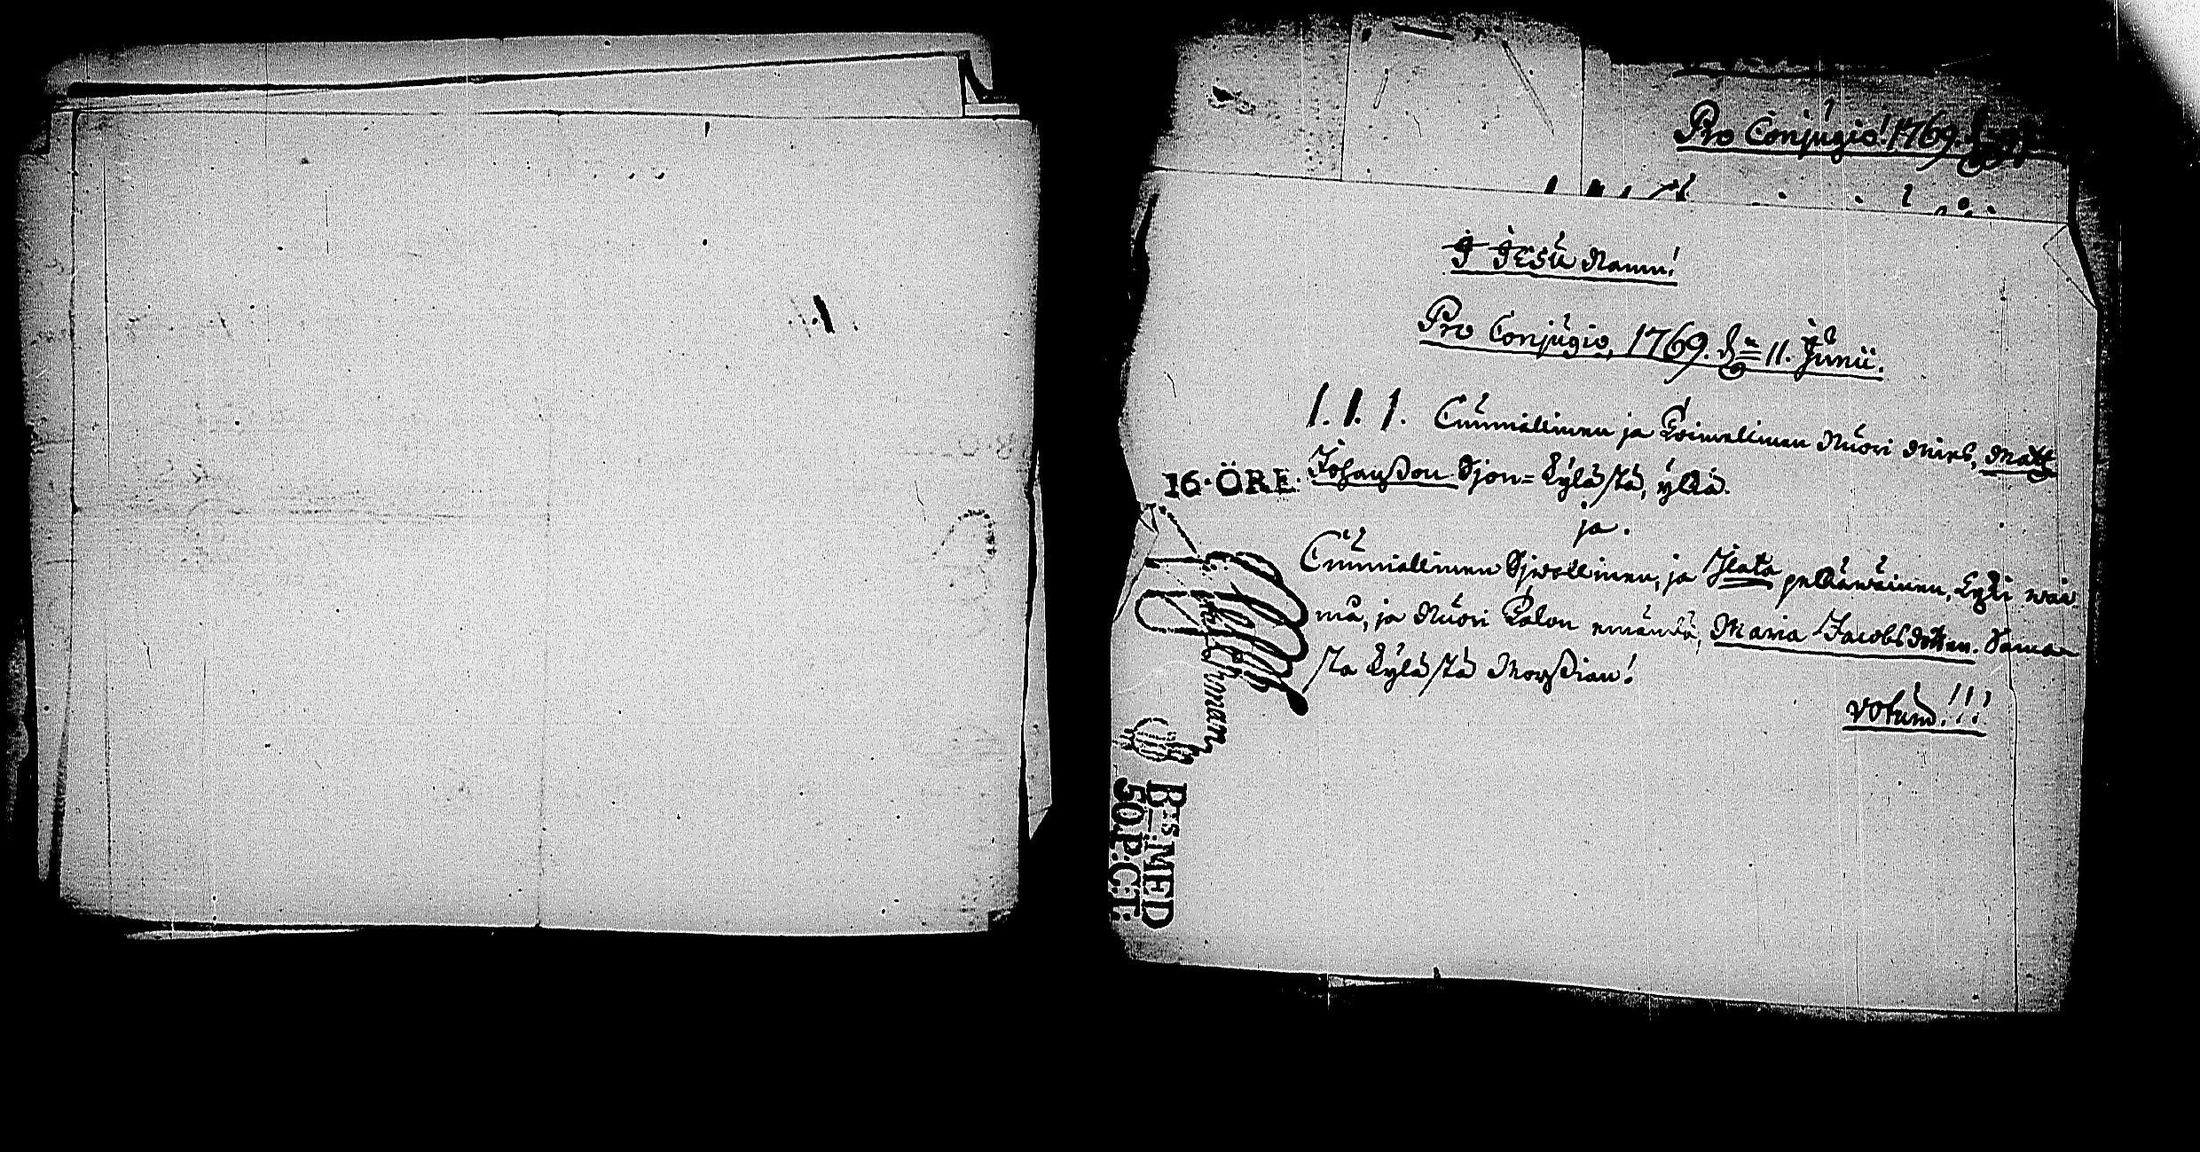 Pro Conjugio! 1769.
J JESU Namn!
Pro Conjugio, 1769. dn 11. Junii.
1. 1. 1. Cunniallinen ja Toimellinen Nuori Mies, Matts
Johansson Sjon=Kylästä, yllä.
ja.
Cunniallinen Sjwollinen, ja Jlata pelkäwäinen, Leski wai
må, ja Nuori Talon emändä, Maria Jacobsdotter. Sama-
sta Kylästä Morsian!
Votum!!!
16·ÖRE.
B:s MED
50.P.C:T: